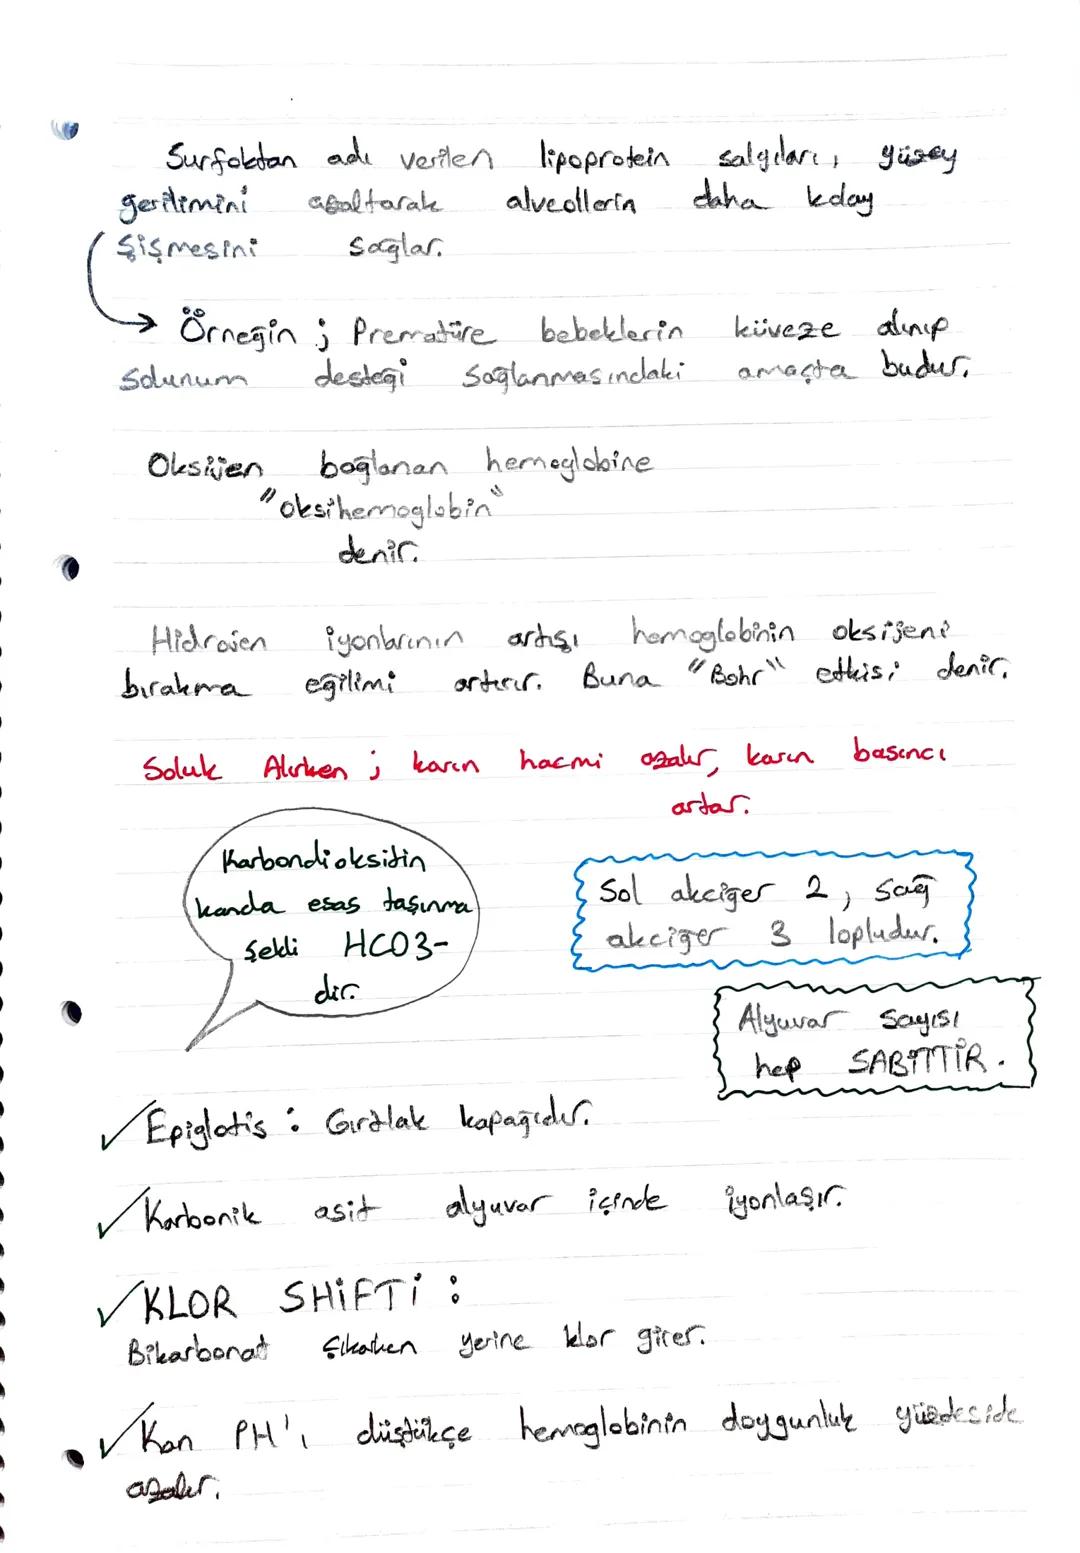 Surfaktan adı verilen lipoprotein salgıları, yüzey
gerilimini azaltarak alveollerin daha kolay
şişmesini sağlar.
→ Örneğin ; Prematüre bebeklerin küveze alınıp
solunum desteği sağlanmasındaki amaçta budur.
Oksijen bağlanan hemoglobine
"oksihemoglobin"
denir.
Hidrojen iyonlarının artışı hemoglobinin oksijeni
bırakma eğilimi artırır. Buna "Bohr" etkisi denir.
Soluk Alırken ; karın hacmi azalır, karın basıncı
artar.
Karbondioksitin
kanda esas taşınma
şekli HCO3-
dir.
Sol akciğer 2, sağ
akciğer 3 lopludur.
Alyuvar sayısı
hep SABİTTİR.
✓ Epiglotis : Gırtlak kapağıdır.
✓ Karbonik asit alyuvar içinde iyonlaşır.
✓ KLOR SHİFTİ :
Bikarbonat çıkarken yerine klor girer.
✓ Kan PH'ı düştükçe hemoglobinin doygunluk yüzdeside
azalır.